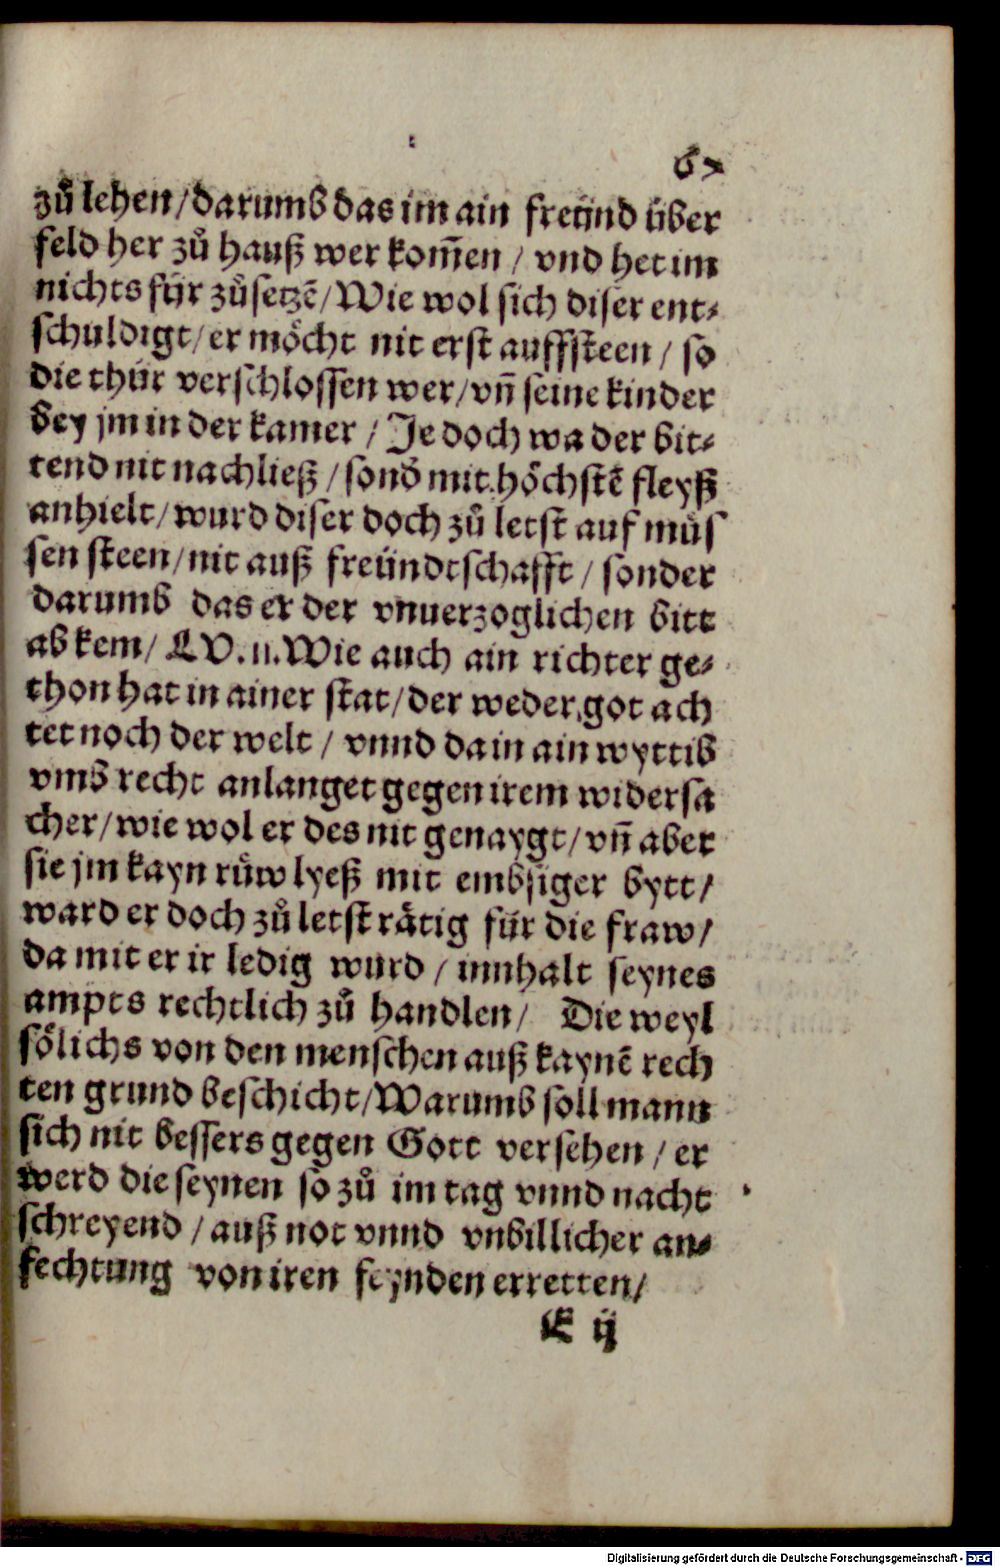 67
zuͦ lehen/ darumb das im ain freünd über
feld her zuͦ hauß wer kom̄en / vnd het im
nichts für zuͦsetzē/ Wie wol sich diser ent⸗
schuldigt/ er moͤcht nit erst auffsteen / so
die thür verschlossen wer/ vn̄ seine kinder
bey jm in der kamer / Je doch wa der bit⸗
tend nit nachließ / sond̕ mit hoͤchstē fleyß
anhielt/ wurd diser doch zuͦ letst auf muͤs
sen steen/ nit auß freündtschafft / sonder
darumb das er der vnuerzoglichen bitt
ab kem/ LV. ii. Wie auch ain richter ge⸗
thon hat in ainer stat/ der weder got ach
tet noch der welt / vnnd da in ain wyttib
vmb recht anlanget gegen irem widersa
cher/ wie wol er des nit genaygt/ vn̄ aber
sie jm kayn ruͦw lyeß mit embsiger bytt/
ward er doch zuͦ letst raͤtig für die fraw/
da mit er ir ledig wurd / innhalt seynes
ampts rechtlich zuͦ handlen/ Die weyl
soͤlichs von den menschen auß kaynē rech
ten grund beschicht/ Warumb soll mann
sich nit bessers gegen Gott versehen / er
werd die seynen so zuͦ im tag vnnd nacht
schreyend / auß not vnnd vnbillicher an⸗
fechtung von iren feynden erretten/
E ij
Digitalisierung gefördert durch die Deutsche Forschungsgemeinschaft - DFG